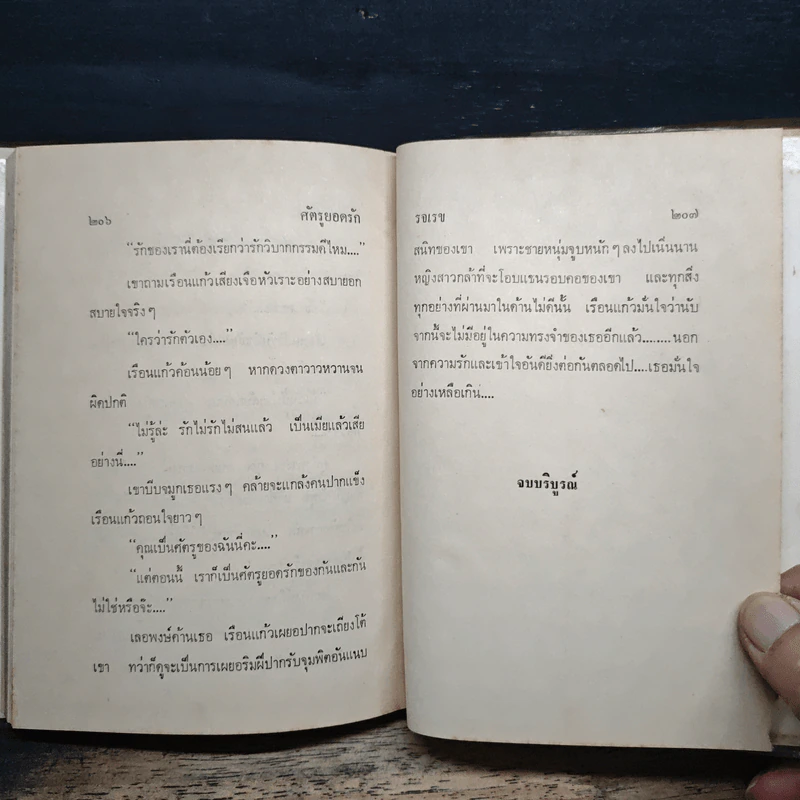 ๒๐๖ ศัตรูยอดรัก
“รักของเรานี่ต้องเรียกว่ารักวิบากกรรมดีไหม....”
เขาถามเรือนแก้วเสียงเจือหัวเราะอย่างสบายอก
สบายใจจริง ๆ
“ใครว่ารักตัวเอง....”
เรือนแก้วค้อนน้อย ๆ หากดวงตาวาวหวานจน
ผิดปกติ
“ไม่รู้ล่ะ รักไม่รักไม่สนแล้ว เป็นเมียแล้วเสีย
อย่างนี่....”
เขาบีบจมูกเธอแรง ๆ คล้ายจะแกล้งคนปากแข็ง
เรือนแก้วถอนใจยาว ๆ
“คุณเป็นศัตรูของฉันนี่คะ....”
“แต่ตอนนี้ เราก็เป็นศัตรูยอดรักของกันและกัน
ไม่ใช่หรือจ๊ะ....”
เลอพงษ์ค้านเธอ เรือนแก้วเผยอปากจะเถียงโต้
เขา ทว่าก็ดูจะเป็นการเผยอริมฝีปากรับจุมพิตอันแนบ
รอเรข ๒๐๗
สนิทของเขา เพราะชายหนุ่มจูบหนัก ๆ ลงไปเนิ่นนาน
หญิงสาวกล้าที่จะโอบแขนรอบคอของเขา และทุกสิ่ง
ทุกอย่างที่ผ่านมาในด้านไม่ดีนั้น เรือนแก้วมั่นใจว่านับ
จากนี้จะไม่มีอยู่ในความทรงจำของเธออีกแล้ว........นอก
จากความรักและเข้าใจอันดียิ่งต่อกันตลอดไป....เธอมั่นใจ
อย่างเหลือเกิน....
จบบริบูรณ์